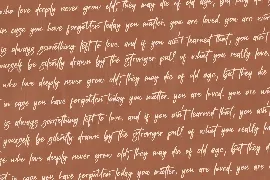 who love deeply never grow old; they may die of old age, but they
in case you have forgotten today you matter. you are loved. you are wor
is always something left to love. and if you ain't learned that, you ain't
yourself be silently drawn by the stronger pull of what you really love
who love deeply never grow old; they may die of old age, but they die
in case you have forgotten today you matter. you are loved. you are
is always something left to love. and if you ain't learned that, you
yourself be silently drawn by the stronger pull of what you really
who love deeply never grow old; they may die of old age, but
in case you have forgotten today you matter. you are loved. you are